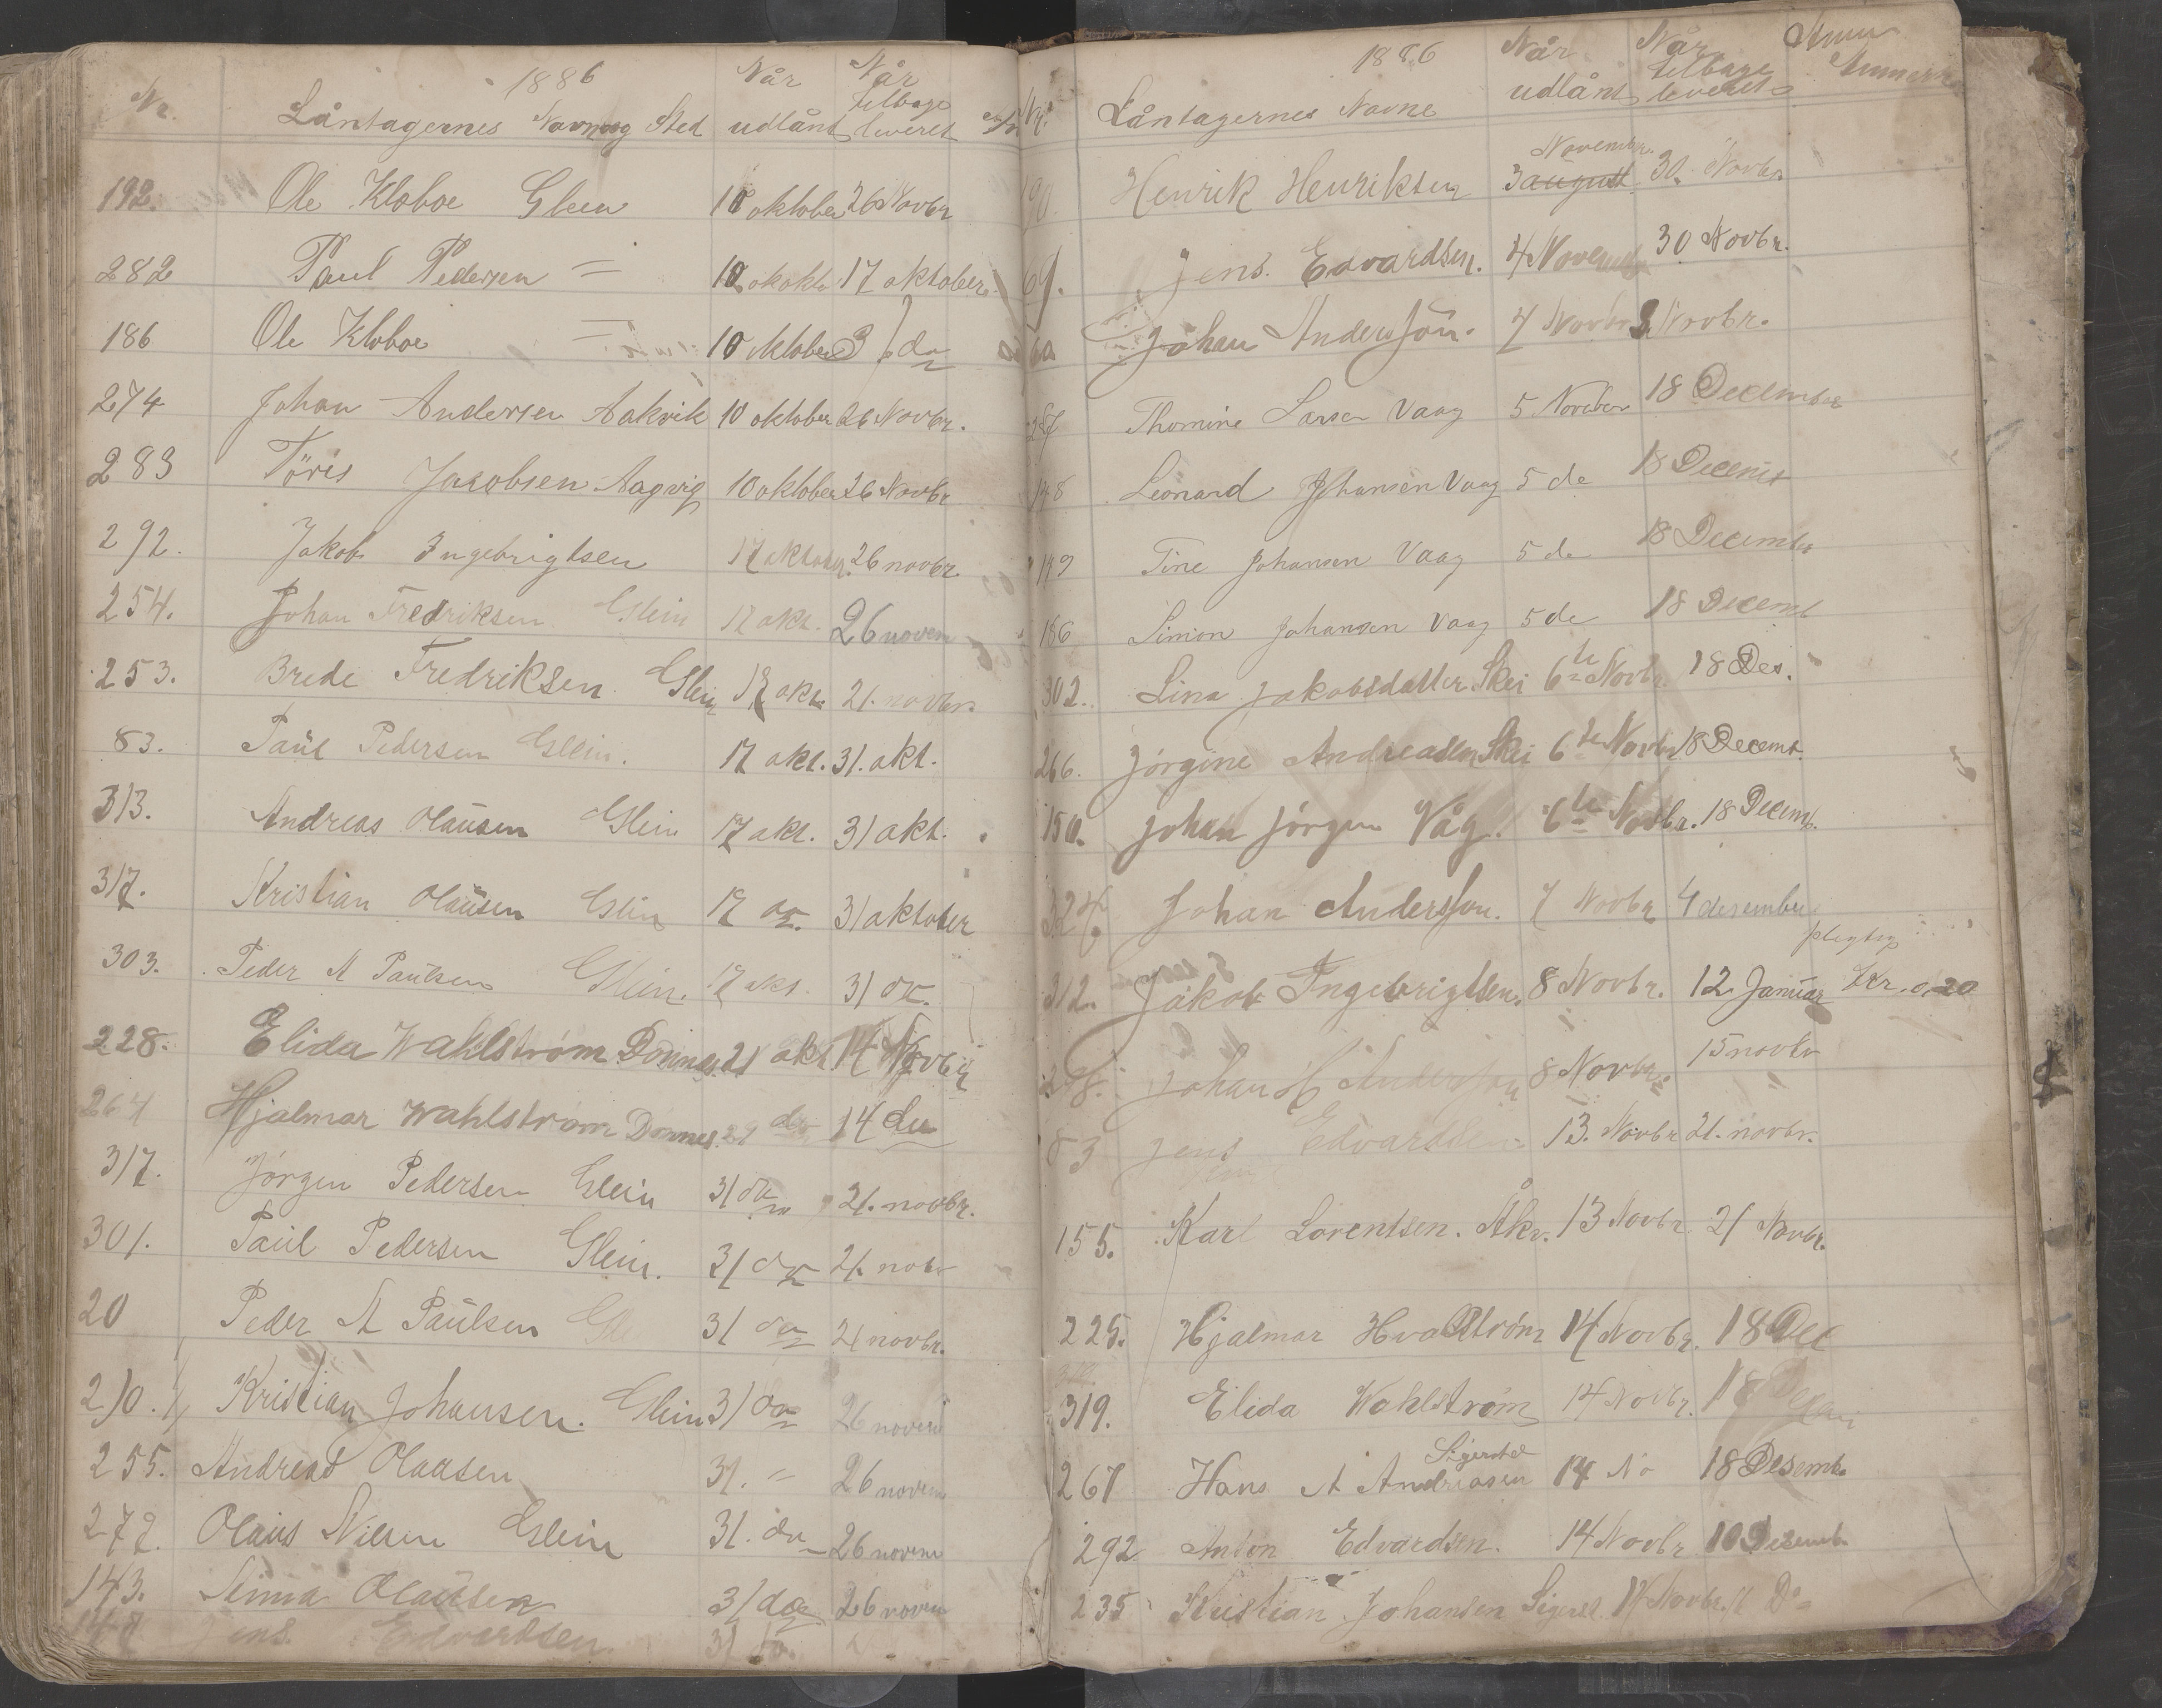 1886
Nr. Låntagernes Navn og Sted Når udlånt Når tilbage leveret
192. Ole Kloboe Glein 10 oktober 26 Novbr
282 Paul Pedersen = 10 okokt 17 oktober
186 Ole Kloboe = 10 oktober 3 do
274 Johan Andersen Aakvik 10 oktober 26 Novbr.
283 Töris Jacobsen Aagvig 10 oktober 26 Novbr
292. Jakob Ingebrigtsen 17 oktober 26 novbr.
254. Johan Fredriksen Glein 17 okt. 26 novem
253. Brede Fredriksen Glein 17 okt. 21. novbr.
83. Paul Pedersen Glein. 17 okt. 31. okt.
313. Andreas Olausen Glein 17 okt. 31 okt.
317. Kristian Olausen Glein 17 do. 31 oktober
303. Peder A Paulsen Glein. 17 okt. 31 do.
228. Elida Wahlstrøm Dønnes. 21 okt 14 Novbr
264 Hjalmar Wahlstrøm Dønnes. 21 do 14 do
317. Jørgen Pedersen Glein 31 do 21. novbr.
301. Paul Pedersen Glein. 31 do 21. nobr
20 Peder A Paulsen Gle 31 do 21 novbr.
210. Kristian Johansen. Glein 31 do 26 novem
255. Andreas Olausen 31. = 26 novem
272. Olaus Nilsen Glein 31. do 26 novem
143. Anna Olausen 31 do 26 novem
Jens. Edvardsen 31 do.
1886
Nr. Låntagernes Navne Når udlånt Når tilbage leveret Anm Anmerk
90. Henrik Henriksen 3 august Novembr. 30. Novbr
69. Jens. Edvardsen. 4 Novemb 30 Novbr.
60 Johan Andersson. 4 Novbr 3 Novbr.
287 Thomine Larsen Vaag 5 November 18 December
148 Leonard Johansen Vaag 5 do 18 Decembr
149 Tine Johansen Vaag 5 do 18 Decembr
186 Simon Johansen Vaag 5 do 18 Decemb
302. Lina Jakobsdatter. Skei 6te Novbr. 18 Des.
266. Jørgine Andreasen Skei 6te Novbr 18 Decemb.
150. Johan Jørgen Våg. 6te Novbr. 18 Decemb.
324 Johan Andersson. 7 Novbr 4 desember
plegtig
312. Jakob Ingebrigtsen. 8 Novbr. 12. Januar Kr. 0,20
Johan H Andersson 8 Novbr. 15 novbr
83 Jens Edvardsen 13. Novbr 21. novbr.
155. Karl Lorentsen. Åkv. 13 Novbr 21 Novbr.
225. Hjalmar Hvalstrøm 14 Novbr. 18 Dec
319. Elida Wahlstrøm 14 Novbr. 18
267 Hans A Andreasen Sigerstd 14 No 18 Desemb.
292 Anton Edvardsen. 14 Novbr 10 Desemb.
235 Kristian Johansen Sigerst. 14 Novbr. 11 Do